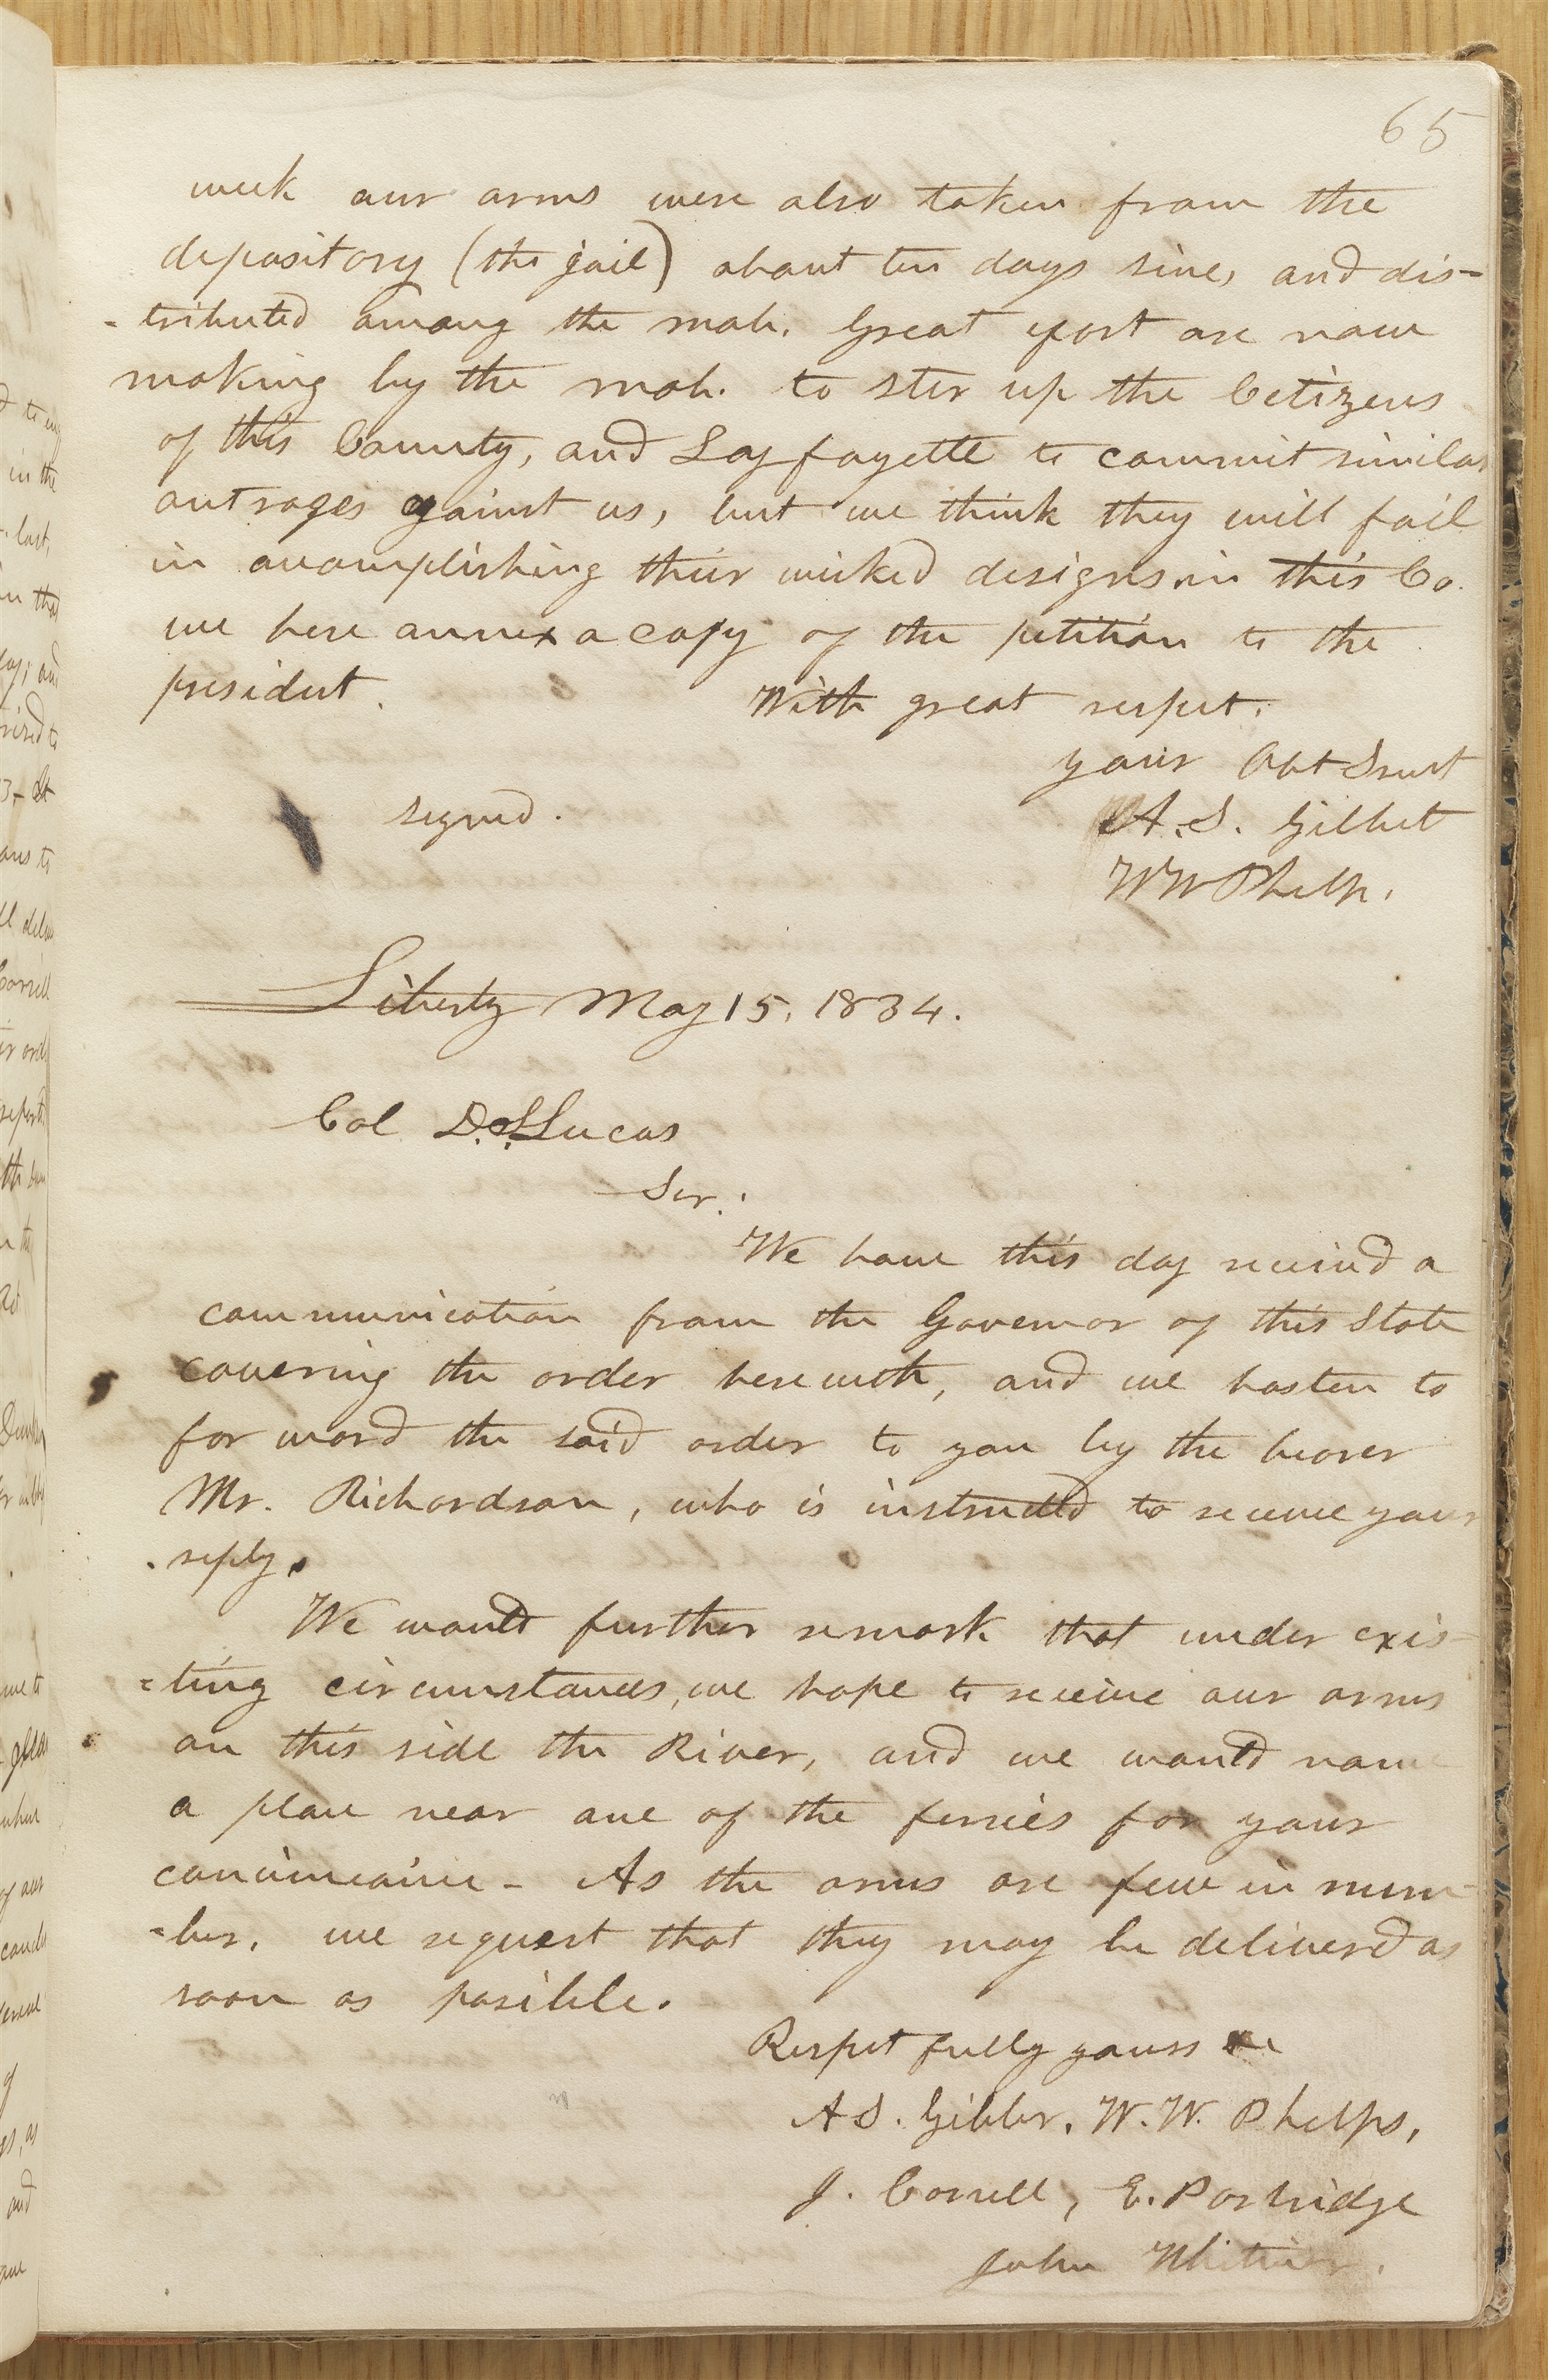 65
week our arms were also taken from the
depository (the jail) about ten days since, and dis-
-tributed among the mob. Great efort are now
making by the mob. to ster up the Cetizens
of this County, and Layfayette to commit similar
outrages against us, but we think they will fail
in accomplishing their wicked designs in this Co.
we here annex a copy of the petition to the
president.
With great respect.
your Obt Srvt
signed.
A. S. Gilbert
WW Phelps.
Liberty May 15, 1834.
Col S. Lucas
Ser.
We have this day received a
communication from the Governor of this State
covering the order herewith, and we hasten to
forword the said order to you by the bearer
Mr. Richardson, who is instructed to receive your
reply.
We would further remark that under exis-
=ting circumstances, we hope to receive our arms
on this side the River, and we would name
a place near one of the ferries for your
convineaince - As the arms are few in num-
-ber. we request that they may be deliverd as
soon as posible.
Respectfully yours &c
A S. Gilber, W. W. Phelps,
J. Corrill, E. Partridge
John Whitmer.